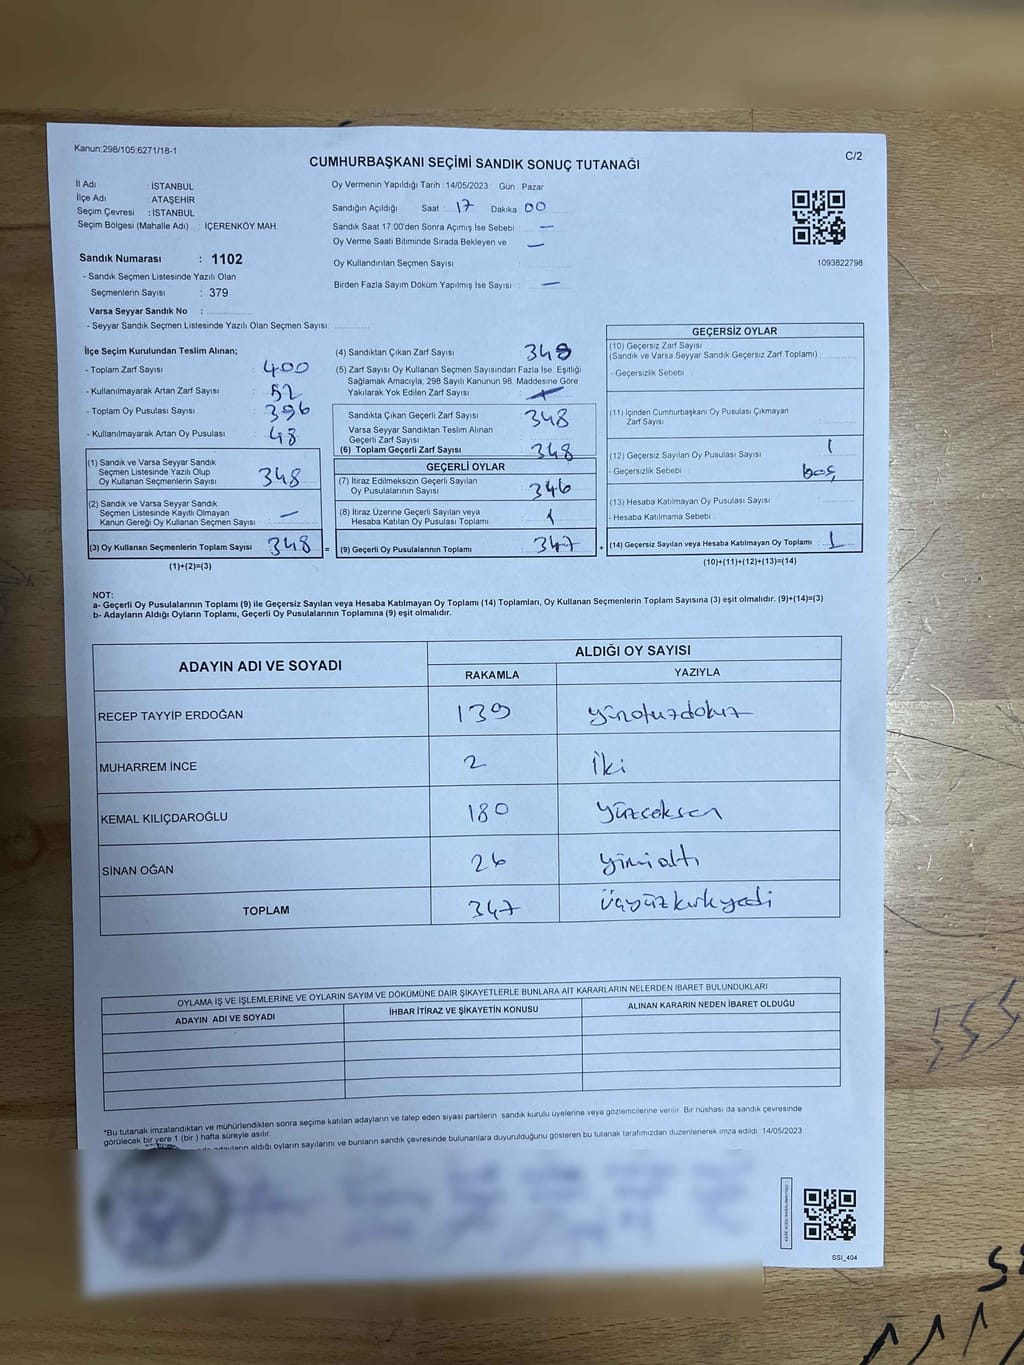 Kanun:298/105;6271/18-1
CUMHURBAŞKANI SEÇİMİ SANDIK SONUÇ TUTANAĞI
C/2
İl Adı : İSTANBUL
İlçe Adı : ATAŞEHİR
Seçim Çevresi : İSTANBUL
Seçim Bölgesi (Mahalle Adı) : İÇERENKÖY MAH.
Sandık Numarası : 1102
- Sandık Seçmen Listesinde Yazılı Olan
Seçmenlerin Sayısı : 379
Varsa Seyyar Sandık No :
- Seyyar Sandık Seçmen Listesinde Yazılı Olan Seçmen Sayısı:
Oy Vermenin Yapıldığı Tarih :14/05/2023 Gün : Pazar
Sandığın Açıldığı Saat : 17 Dakika : 00
Sandık Saat 17:00'den Sonra Açımış İse Sebebi : —
Oy Verme Saati Bitiminde Sırada Bekleyen ve —
Oy Kullandırılan Seçmen Sayısı
Birden Fazla Sayım Döküm Yapılmış İse Sayısı : —
1093822798
İlçe Seçim Kurulundan Teslim Alınan;
- Toplam Zarf Sayısı : 400
- Kullanılmayarak Artan Zarf Sayısı : 52
- Toplam Oy Pusulası Sayısı : 396
- Kullanılmayarak Artan Oy Pusulası : 48
(1) Sandık ve Varsa Seyyar Sandık
Seçmen Listesinde Yazılı Olup
Oy Kullanan Seçmenlerin Sayısı : 348
(2) Sandık ve Varsa Seyyar Sandık
Seçmen Listesinde Kayıtlı Olmayan
Kanun Gereği Oy Kullanan Seçmen Sayısı : —
(3) Oy Kullanan Seçmenlerin Toplam Sayısı : 348
(1)+(2)=(3)
(4) Sandıktan Çıkan Zarf Sayısı : 348
(5) Zarf Sayısı Oy Kullanan Seçmen Sayısından Fazla İse, Eşitliği
Sağlamak Amacıyla, 298 Sayılı Kanunun 98. Maddesine Göre
Yakılarak Yok Edilen Zarf Sayısı :
Sandıkta Çıkan Geçerli Zarf Sayısı : 348
Varsa Seyyar Sandıktan Teslim Alınan
Geçerli Zarf Sayısı :
(6) Toplam Geçerli Zarf Sayısı : 348
GEÇERLİ OYLAR
(7) İtiraz Edilmeksizin Geçerli Sayılan
Oy Pusulalarının Sayısı : 346
(8) İtiraz Üzerine Geçerli Sayılan veya
Hesaba Katılan Oy Pusulası Toplamı : 1
= (9) Geçerli Oy Pusulalarının Toplamı : 347
GEÇERSİZ OYLAR
(10) Geçersiz Zarf Sayısı
(Sandık ve Varsa Seyyar Sandık Geçersiz Zarf Toplamı) :
- Geçersizlik Sebebi :
(11) İçinden Cumhurbaşkanı Oy Pusulası Çıkmayan
Zarf Sayısı :
(12) Geçersiz Sayılan Oy Pusulası Sayısı : 1
- Geçersizlik Sebebi : boş
(13) Hesaba Katılmayan Oy Pusulası Sayısı :
- Hesaba Katılmama Sebebi :
+ (14) Geçersiz Sayılan veya Hesaba Katılmayan Oy Toplamı : 1
(10)+(11)+(12)+(13)=(14)
NOT:
a- Geçerli Oy Pusulalarının Toplamı (9) ile Geçersiz Sayılan veya Hesaba Katılmayan Oy Toplamı (14) Toplamları, Oy Kullanan Seçmenlerin Toplam Sayısına (3) eşit olmalıdır. (9)+(14)=(3)
b- Adayların Aldığı Oyların Toplamı, Geçerli Oy Pusulalarının Toplamına (9) eşit olmalıdır.
ADAYIN ADI VE SOYADI
ALDIĞI OY SAYISI
RAKAMLA YAZIYLA
RECEP TAYYİP ERDOĞAN 139 yüzotuzdokuz
MUHARREM İNCE 2 İki
KEMAL KILIÇDAROĞLU 180 yüzseksen
SİNAN OĞAN 26 yirmialtı
TOPLAM 347 üçyüzkırkyedi
OYLAMA İŞ VE İŞLEMLERİNE VE OYLARIN SAYIM VE DÖKÜMÜNE DAİR ŞİKAYETLERLE BUNLARA AİT KARARLARIN NELERDEN İBARET BULUNDUKLARI
ADAYIN ADI VE SOYADI İHBAR İTİRAZ VE ŞİKAYETİN KONUSU ALINAN KARARIN NEDEN İBARET OLDUĞU
*Bu tutanak imzalandıktan ve mühürlendikten sonra seçime katılan adayların ve talep eden siyasi partilerin sandık kurulu üyelerine veya gözlemcilerine verilir. Bir nüshası da sandık çevresinde
görülecek bir yere 1 (bir ) hafta süreyle asılır.
adayların aldığı oyların sayılarını ve bunların sandık çevresinde bulunanlara duyurulduğunu gösteren bu tutanak tarafımızdan düzenlenerek imza edildi. 14/05/2023
SSİ_404